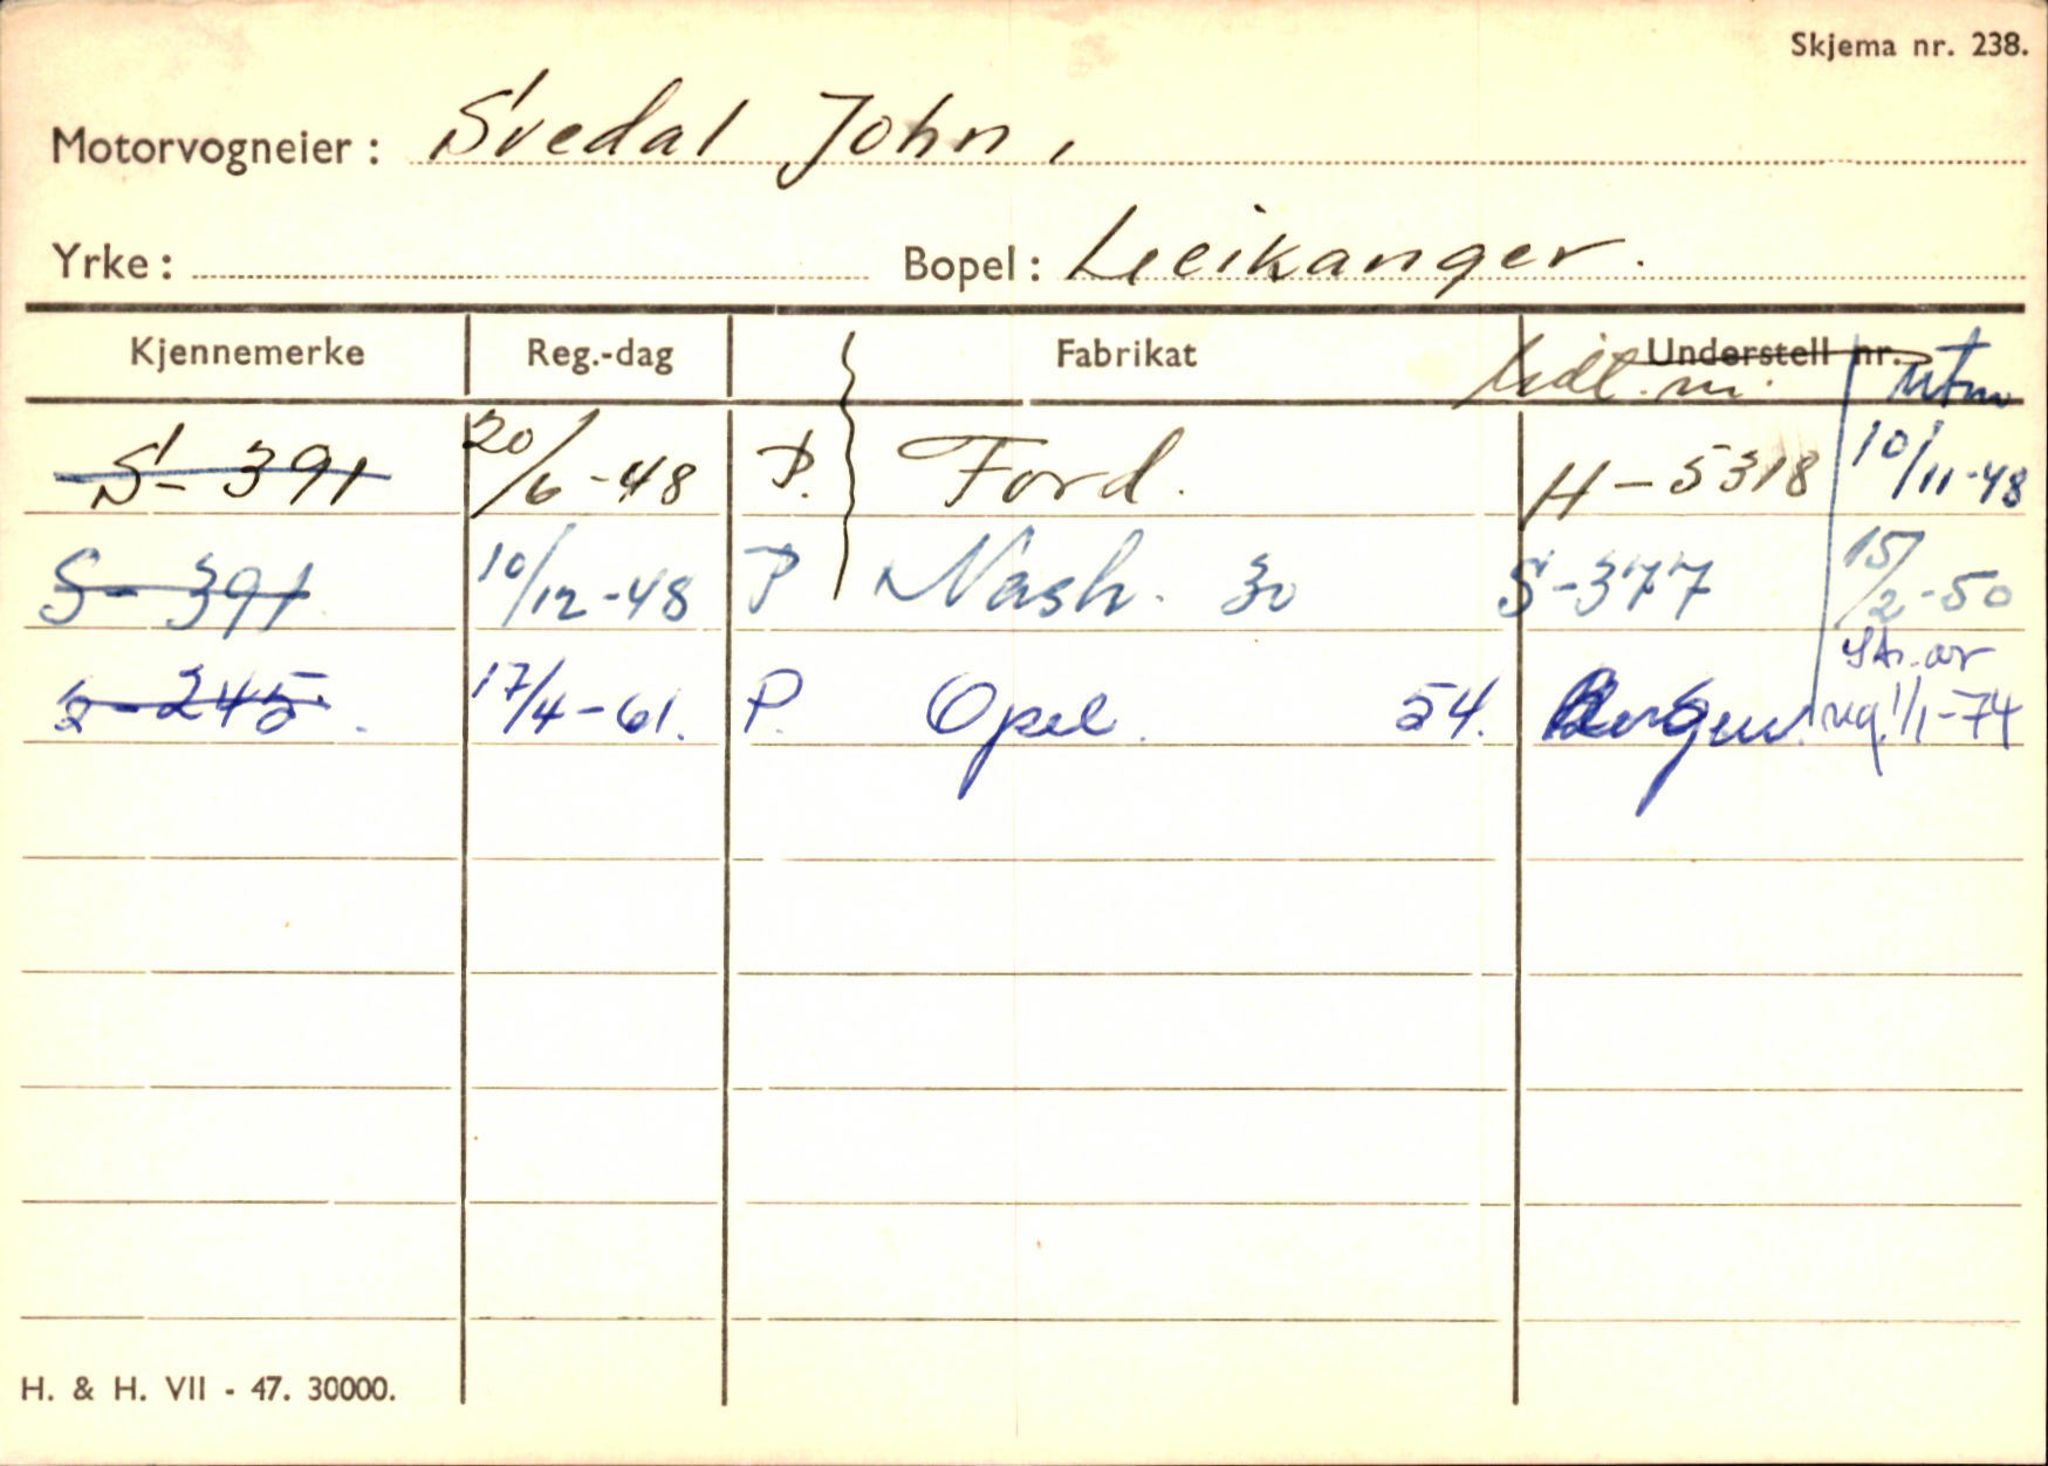 Skjema nr. 238.
Motorvogneier: Svedal John,
Yrke: Bopel: Leikanger.
Kjennemerke Reg.-dag Fabrikat Understell nr.
S-391 20/6-48 P. Ford. H-5318 10/11-48
S-391 10/12-48 P Nash. 30 S-377 15/2-50
S-245. 17/4-61. P. Opel. 54. Bergen. Str. av
reg. 1/1-74
H. & H. VII - 47. 30000.